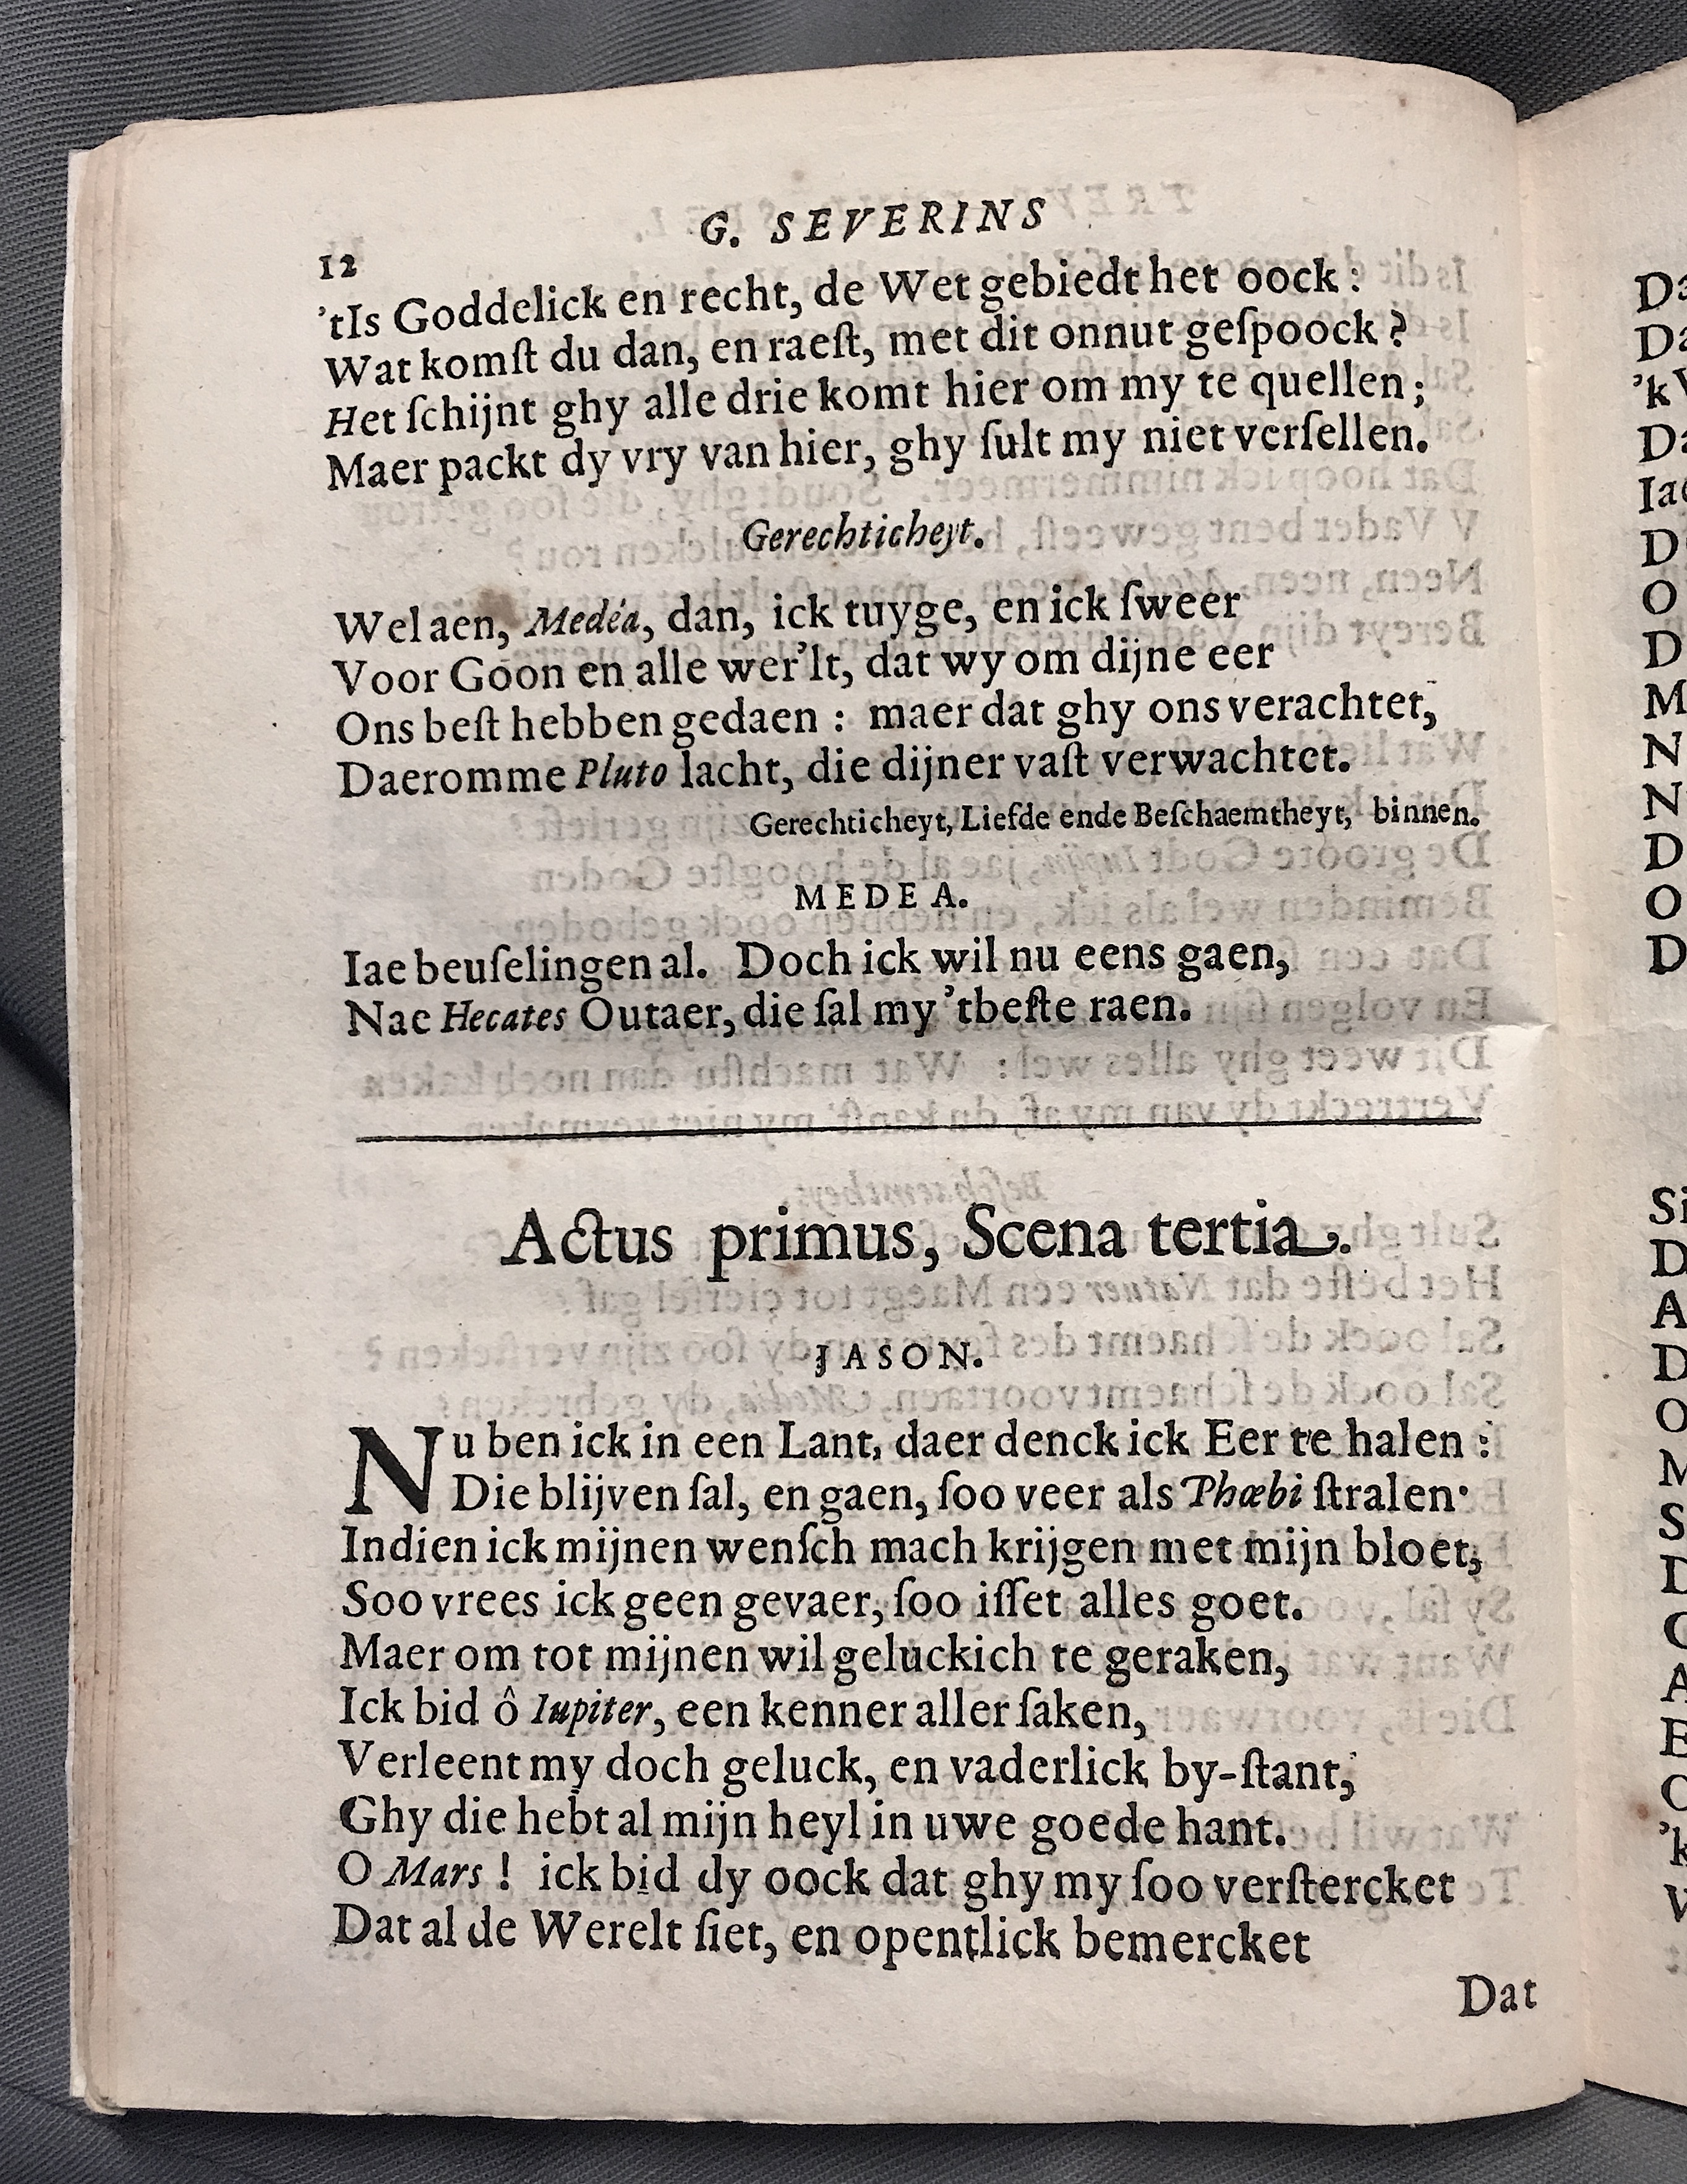 G. SEVERINS
12
'tIs Goddelick en recht, de Wet gebiedt het oock :
Wat komſt du dan, en raeſt, met dit onnut geſpoock ?
Het ſchijnt ghy alle drie komt hier om my te quellen ;
Maer packt dy vry van hier, ghy ſult my niet verſellen.
Gerechticheyt.
Wel aen, Medéa, dan, ick tuyge, en ick ſweer
Voor Goon en alle wer'lt, dat wy om dijne eer
Ons beſt hebben gedaen : maer dat ghy ons verachtet,
Daeromme Pluto lacht, die dijner vaſt verwachtet.
Gerechticheyt, Liefde ende Beſchaemtheyt, binnen.
MEDEA.
Iae beuſelingen al. Doch ick wil nu eens gaen,
Nae Hecates Outaer, die ſal my 'tbeſte raen.
Actus primus, Scena tertia.
JASON.
Nu ben ick in een Lant, daer denck ick Eer te halen :
Die blijven ſal, en gaen, ſoo veer als Phœbi ſtralen·
Indien ick mijnen wenſch mach krijgen met mijn bloet,
Soo vrees ick geen gevaer, ſoo iſſet alles goet.
Maer om tot mijnen wil geluckich te geraken,
Ick bid ô Iupiter, een kenner aller ſaken,
Verleent my doch geluck, en vaderlick by-ſtant,
Ghy die hebt al mijn heyl in uwe goede hant.
O Mars ! ick bid dy oock dat ghy my ſoo verſtercket
Dat al de Werelt ſiet, en opentlick bemercket
Dat
Da
Da
'k V
Da
Iae
D
O
D
M
N
N
D
O
D
Si
D
A
D
O
M
S
D
A
E
'k
V